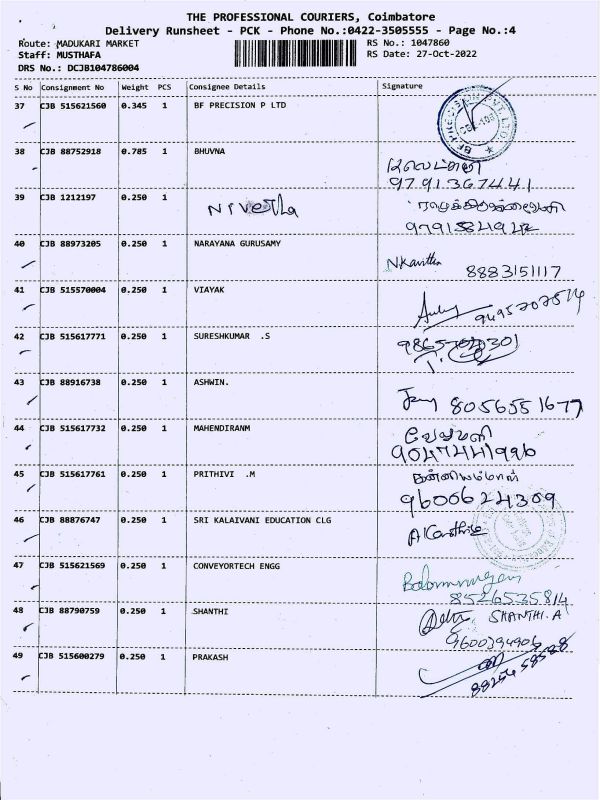 THE PROFESSIONAL COURIERS, Coimbatore
Delivery Runsheet - PCK - Phone No.:0422-3505555 - Page No.:4
Route: MADUKARI MARKET
RS No.: 1047860
Staff: MUSTHAFA
RS Date: 27-Oct-2022
DRS No.: DCJB104786004
S No Consignment No Weight PCS Consignee Details Signature
37 CJB 515621560 0.345 1 BF PRECISION P LTD
38 CJB 88752918 0.785 1 BHUVNA
9791367441
39 CJB 1212197 0.250 1 Nivetha
9791584942
40 CJB 88973205 0.250 1 NARAYANA GURUSAMY NKavitha 8883151117
41 CJB 515570004 0.250 1 VIAYAK
42 CJB 515617771 0.250 1 SURESHKUMAR .S
43 CJB 88916738 0.250 1 ASHWIN. 8056551677
44 CJB 515617732 0.250 1 MAHENDIRANM வேலுமணி
9047441996
45 CJB 515617761 0.250 1 PRITHIVI .M கன்னியம்மாள்
9600624309
46 CJB 88876747 0.250 1 SRI KALAIVANI EDUCATION CLG
47 CJB 515621569 0.250 1 CONVEYORTECH ENGG Balamurugan
8526535814
48 CJB 88790759 0.250 1 SHANTHI SHANTHI.A
9600394906
49 CJB 515600279 0.250 1 PRAKASH